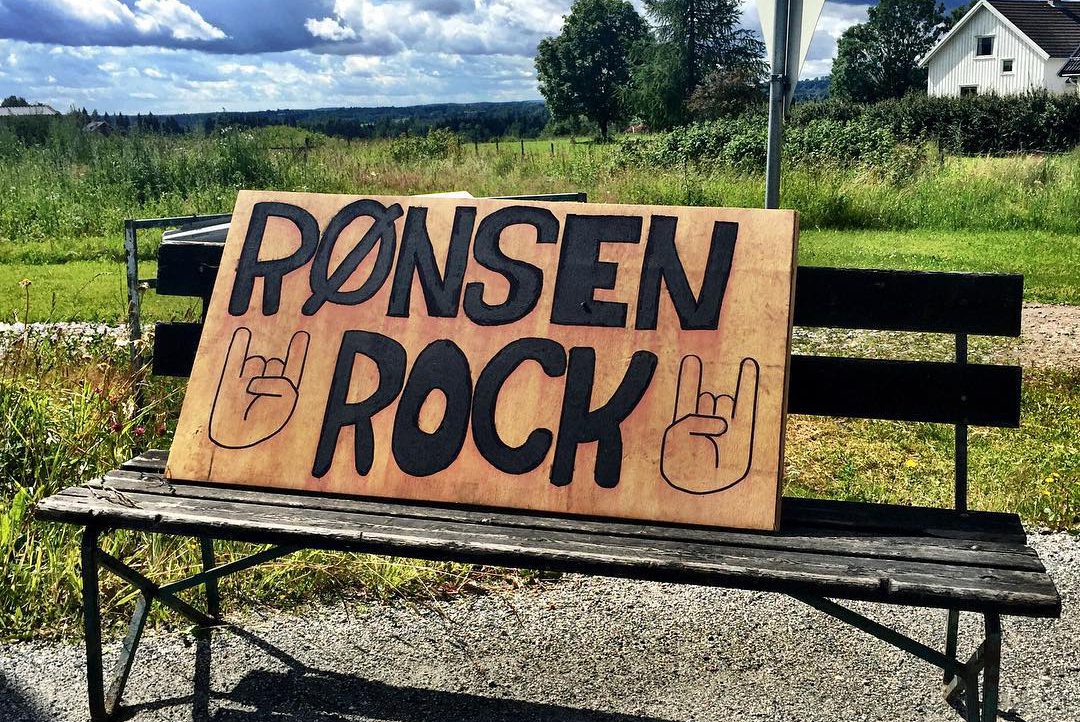 RØNSEN
ROCK